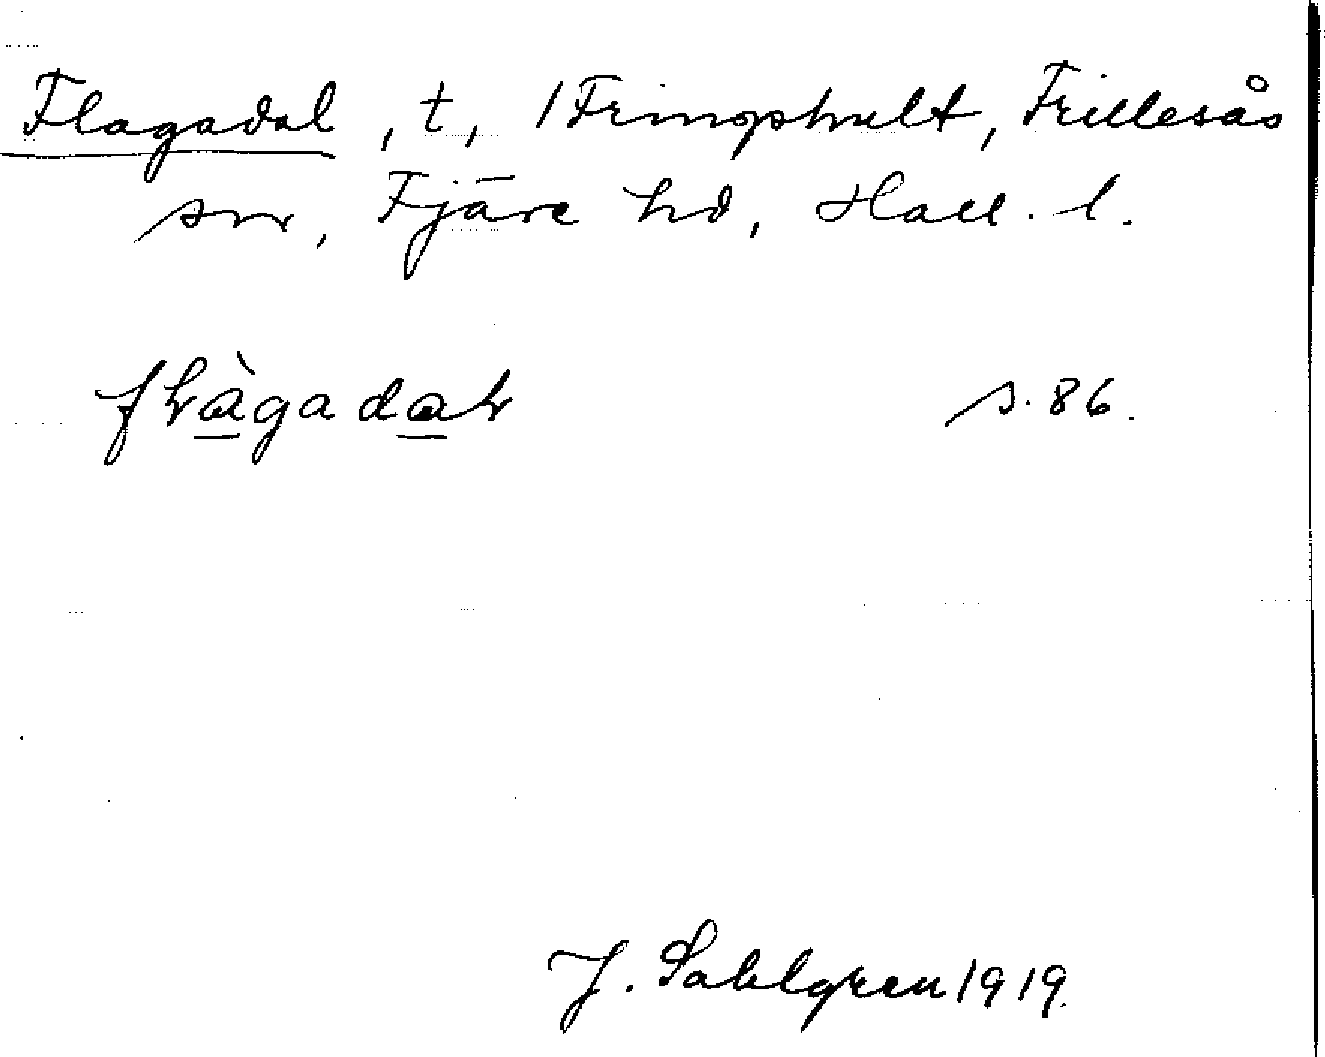 Flagadal, t, /Fringshult, Frillesås
sn, Fjäre hd, Hall. l.
s. 86.
J. Sahlgren 1919.